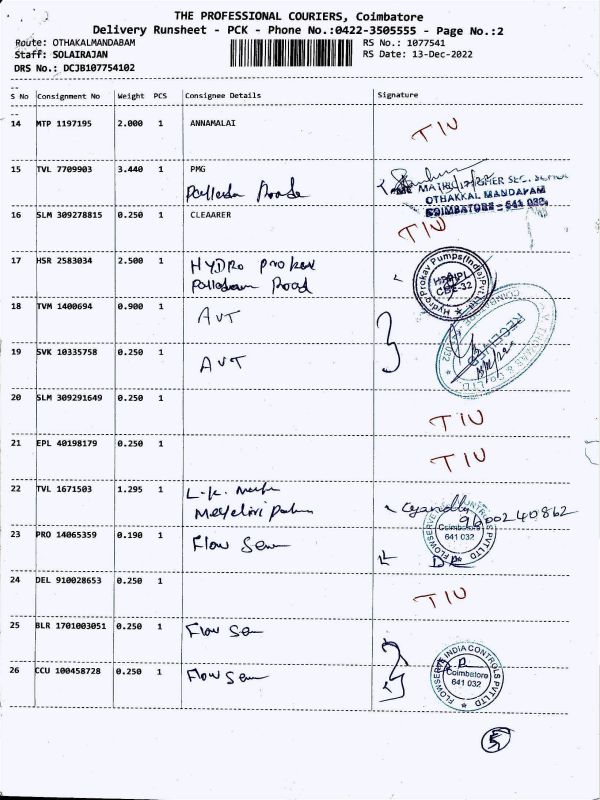 THE PROFESSIONAL COURIERS, Coimbatore
Delivery Runsheet - PCK - Phone No.:0422-3505555 - Page No.:2
Route: OTHAKALMANDABAM RS No.: 1077541
Staff: SOLAIRAJAN RS Date: 13-Dec-2022
DRS No.: DCJB107754102
S No Consignment No Weight PCS Consignee Details Signature
14 MTP 1197195 2.000 1 ANNAMALAI TIU
15 TVL 7709903 3.440 1 PMG
MATRIC HIGHER SEC.
OTHAKKAL MANDAPAM
COIMBATORE - 641 032.
16 SLM 309278815 0.250 1 CLEAARER TIU
17 HSR 2583034 2.500 1 HYDRO Prokav
Palladam Road
Hydro Prokav Pumps(India)Pvt.Ltd.
CBE-32
18 TVM 1400694 0.900 1 AVT
RECEIVED
19 SVK 10335758 0.250 1 AVT
20 SLM 309291649 0.250 1 TIU
21 EPL 40198179 0.250 1 TIU
22 TVL 1671503 1.295 1 L.K.
9600240862
23 PRO 14065359 0.190 1 Flow
FLOWSERVE INDIA CONTROLS PVT LTD
Coimbatore
641 032
24 DEL 910028653 0.250 1 TIU
25 BLR 1701003051 0.250 1 Flow
26 CCU 100458728 0.250 1 Flow
FLOWSERVE INDIA CONTROLS PVT LTD
Coimbatore
641 032
5